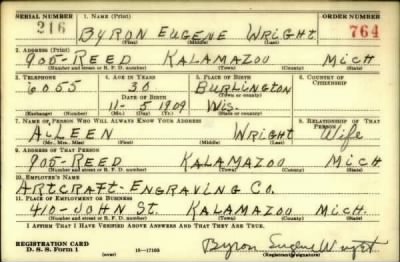 SERIAL NUMBER 1. NAME (Print) ORDER NUMBER
216 BYRON EUGENE WRIGHT 764
(First) (Middle) (Last)
2. ADDRESS (Print)
905-REED KALAMAZOO MICH
(Number and street or R. F. D. number) (Town) (County) (State)
3. TELEPHONE 4. AGE IN YEARS 5. PLACE OF BIRTH 6. COUNTRY OF CITIZENSHIP
6055 30 BURLINGTON
DATE OF BIRTH (Town or county)
11-5 1909 WIS.
(Exchange) (Number) (Mo.) (Day) (Yr.) (State or country)
7. NAME OF PERSON WHO WILL ALWAYS KNOW YOUR ADDRESS 8. RELATIONSHIP OF THAT PERSON
AILEEN WRIGHT WIFE
(Mr., Mrs., Miss) (First) (Middle) (Last)
9. ADDRESS OF THAT PERSON
905-REED KALAMAZOO MICH
(Number and street or R. F. D. number) (Town) (County) (State)
10. EMPLOYER'S NAME
ARTCRAFT-ENGRAVING CO.
11. PLACE OF EMPLOYMENT OR BUSINESS
410-JOHN ST. KALAMAZOO MICH.
(Number and street or R. F. D. number) (Town) (County) (State)
I AFFIRM THAT I HAVE VERIFIED ABOVE ANSWERS AND THAT THEY ARE TRUE.
REGISTRATION CARD
D. S. S. Form 1 (over) 16-17105 Byron Eugene Wright
(Registrant's signature)